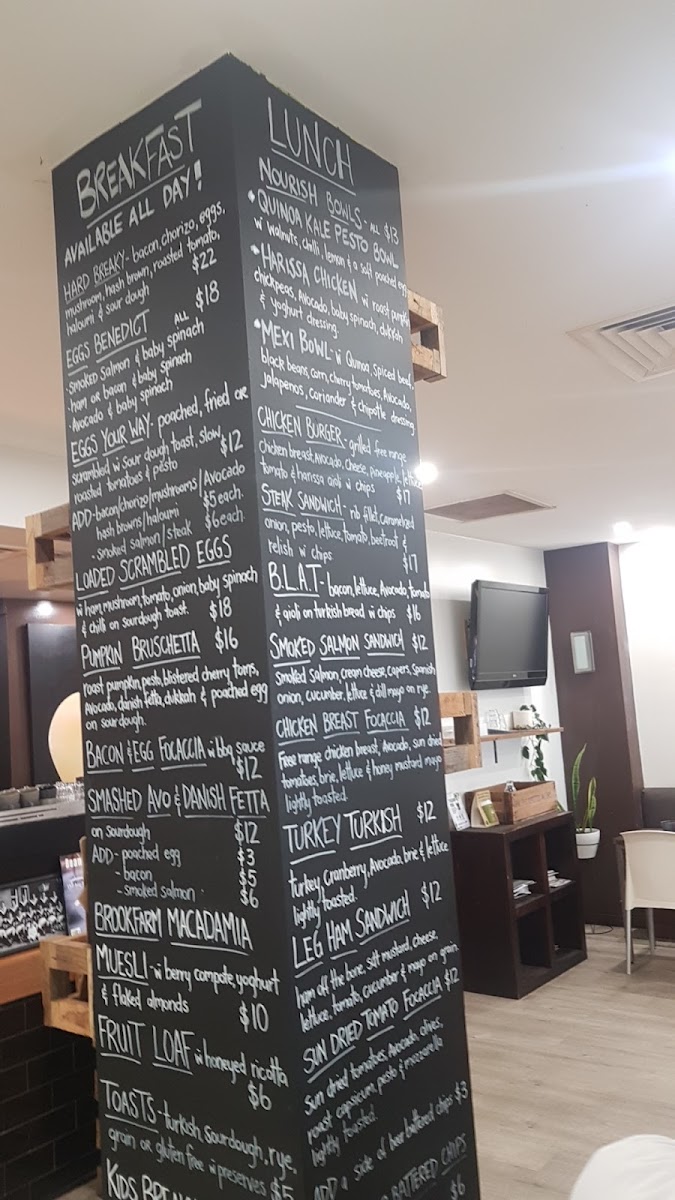 BREAKFAST
AVAILABLE ALL DAY!
HARD BREAKY - bacon, chorizo, eggs,
mushroom, hash brown, roasted tomato,
haloumi & sour dough $22
EGGS BENEDICT ALL $18
• smoked salmon & baby spinach
• ham or bacon & baby spinach
• Avocado & baby spinach
EGGS YOUR WAY - poached, fried or
scrambled w sour dough toast, slow
roasted tomatoes & pesto $12
ADD - bacon/chorizo/mushrooms/Avocado
hash browns/haloumi $5 each
- smoked salmon/steak $6 each
LOADED SCRAMBLED EGGS
w ham, mushroom, tomato, onion, baby spinach
& chilli on sourdough toast $18
PUMPKIN BRUSCHETTA $16
roast pumpkin, pesto, blistered cherry toms,
Avocado, danish fetta, dukkah & poached egg
on sour dough.
BACON & EGG FOCACCIA w bbq sauce
$12
SMASHED AVO & DANISH FETTA
on sourdough $12
ADD - poached egg $3
- bacon $5
- smoked salmon $6
BROOKFARM MACADAMIA
MUESLI - w berry compote, yoghurt
& flaked almonds $10
FRUIT LOAF w honeyed ricotta
$6
TOASTS - turkish, sourdough, rye,
grain or gluten free w preserves $5
KIDS
LUNCH
NOURISH BOWLS - ALL $13
• QUINOA KALE PESTO BOWL
w walnuts, chilli, lemon & a soft poached egg
• HARISSA CHICKEN w roast pumpkin
chickpeas, Avocado, baby spinach, dukkah
& yoghurt dressing
• MEXI BOWL - w Quinoa, spiced beef,
black beans, corn, cherry tomatoes, Avocado,
jalapenos, coriander & chipotle dressing
CHICKEN BURGER - grilled free range
chicken breast, Avocado, cheese, pineapple, lettuce
tomato & harissa aioli w chips $17
STEAK SANDWICH - rib fillet, caramelized
onion, pesto, lettuce, tomato, beetroot &
relish w chips $17
B.L.A.T - bacon, lettuce, Avocado, tomato
& aioli on turkish bread w chips $16
SMOKED SALMON SANDWICH $12
Smoked Salmon, cream cheese, capers, Spanish
onion, cucumber, lettuce & dill mayo on rye.
CHICKEN BREAST FOCACCIA $12
Free range chicken breast, Avocado, sun dried
tomatoes, brie, lettuce & honey mustard mayo
lightly toasted.
TURKEY TURKISH $12
turkey, Cranberry, Avocado, brie & lettuce
lightly toasted.
LEG HAM SANDWICH $12
ham off the bone, sdt mustard, cheese,
lettuce, tomato, cucumber & mayo on grain.
SUN DRIED TOMATO FOCACCIA $12
Sun dried tomatoes, Avocado, olives,
roast capsicum, pesto & mozzarella
lightly toasted.
ADD a side of beer battered chips $3
BATTERED CHIPS
$6